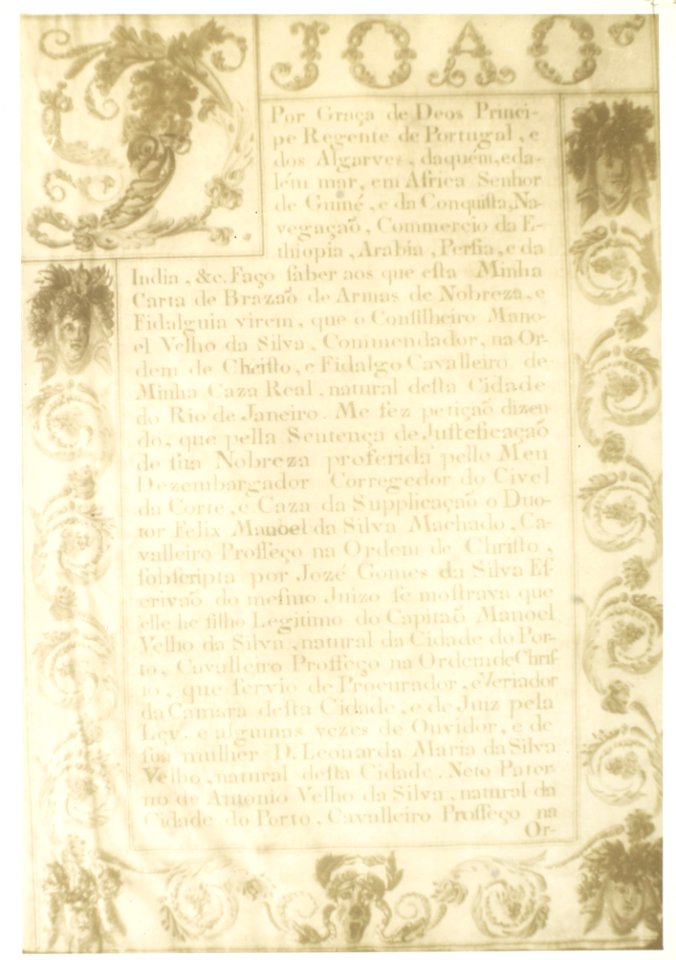 D JOAO
Por Graça de Deos Princi-
pe Regente de Portugal, e
dos Algarves, daquém, eda-
lém mar, em Africa Senhor
de Guiné, e da Conquista, Na-
vegaçaõ, Commercio da E-
thiopia, Arabia, Persia, e da
India, &c. Faço saber aos que esta Minha
Carta de Brazaõ de Armas de Nobreza, e
Fidalguia virem, que o Conselheiro Mano-
el Velho da Silva, Commendador, na Or-
dem de Christo, e Fidalgo Cavalleiro de
Minha Caza Real, natural desta Cidade
do Rio de Janeiro. Me fez petiçaõ dizen-
do, que pella Sentença de Justeficaçaõ
de sua Nobreza proferida pello Meu
Dezembargador Corregedor do Civel
da Corte, e Caza da Supplicaçaõ o Duo-
tor Felix Manoel da Silva Machado, Ca-
valleiro Professo na Ordem de Christo,
sobscripta por Jozé Gomes da Silva Es-
crivaõ do mesmo Juizo se mostrava que
elle he filho Legitimo do Capitaõ Manoel
Velho da Silva, natural da Cidade do Por-
to, Cavalleiro Professo na Ordem de Chris-
to, que servio de Procurador, e Veriador
da Camara desta Cidade, e de Juiz pela
Ley, e algumas vezes de Ouvidor, e de
sua mulher D. Leonarda Maria da Silva
Velho, natural desta Cidade. Neto Pater-
no de Antonio Velho da Silva, natural da
Cidade do Porto, Cavalleiro Professo na
Or-